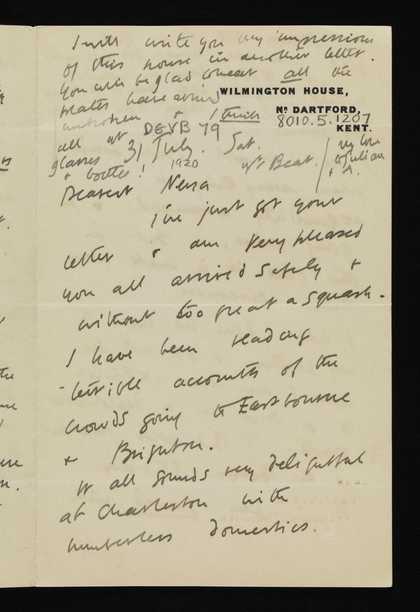 I will write you my impressions
of this house in another letter.
You will be glad to hear all the
plates have arrived
unbroken & I think
all yr
glasses
& bottles!
WILMINGTON HOUSE,
Nr DARTFORD,
KENT.
8010.5.1207
DEVB 79
31 July. Sat.
1920
my love
to Julian
& Q.
Dearest Nessa
I've just got your
letter & am very pleased
you all arrived safely &
without too great a squash.
I have been reading
terrible accounts of the
crowds going to Eastbourne
& Brighton.
It all sounds very delightful
at Charleston with
numberless domestics.